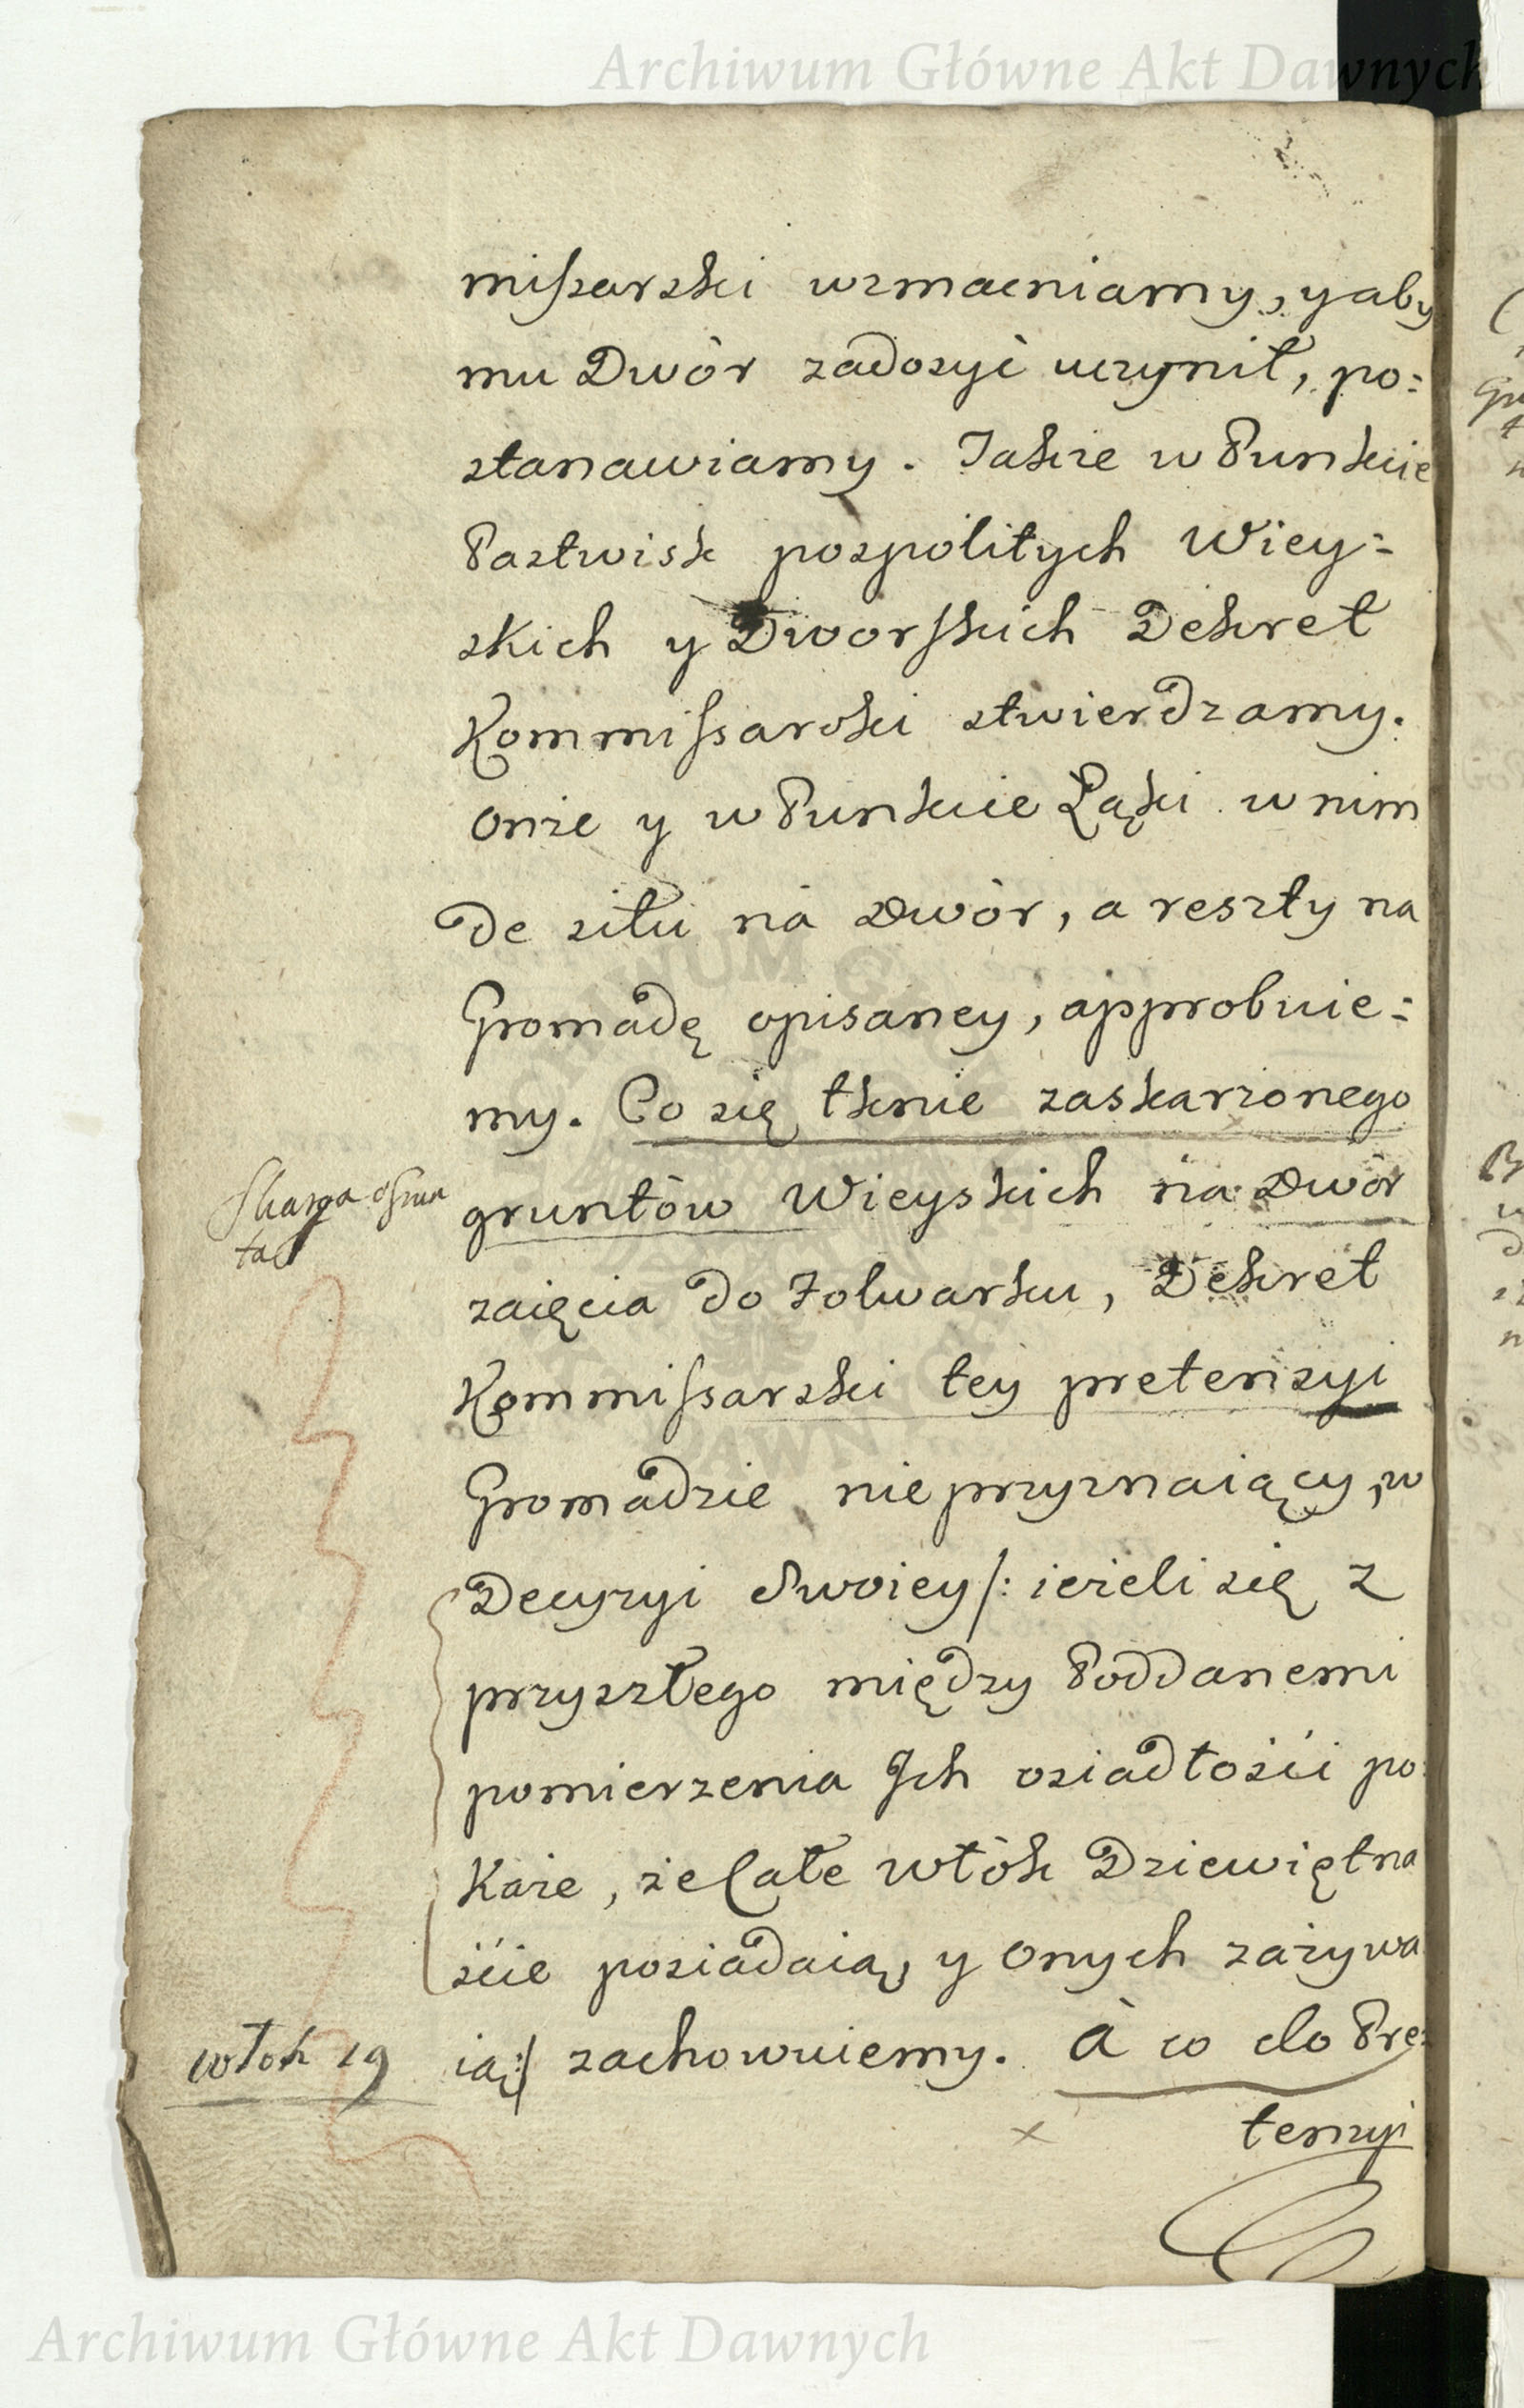 Archiwum Główne Akt Dawnych
missarski wzmacniamy, y aby
mu Dwór zadosyć uczynił, po=
stanawiamy. Takze w Punkcie
Pastwisk pospolitych Wiey=
skich y Dworskich Dekret
Kommissarski stwierdzamy.
Onze y w Punkcie Łąki w nim
De situ na Dwór, a reszty na
Gromadę opisaney, approbuie=
my. Co się tknie zaskarzonego
Skarga o grun
ta
gruntów Wieyskich na Dwór
zaięcia do Folwarku, Dekret
Kommissarski tey pretensyi
Gromadzie nie przyznaiący, w
Decyzyi Swoiey /: ieżeli się z
przyszłego między Poddanemi
pomierzenia Ich osiadłości po=
każe, że Całe włók Dziewiętna
ście posiadaią, y onych zażywa
włok 19
ią :/ zachowuiemy. A co do Pre=
tensyi
Archiwum Główne Akt Dawnych